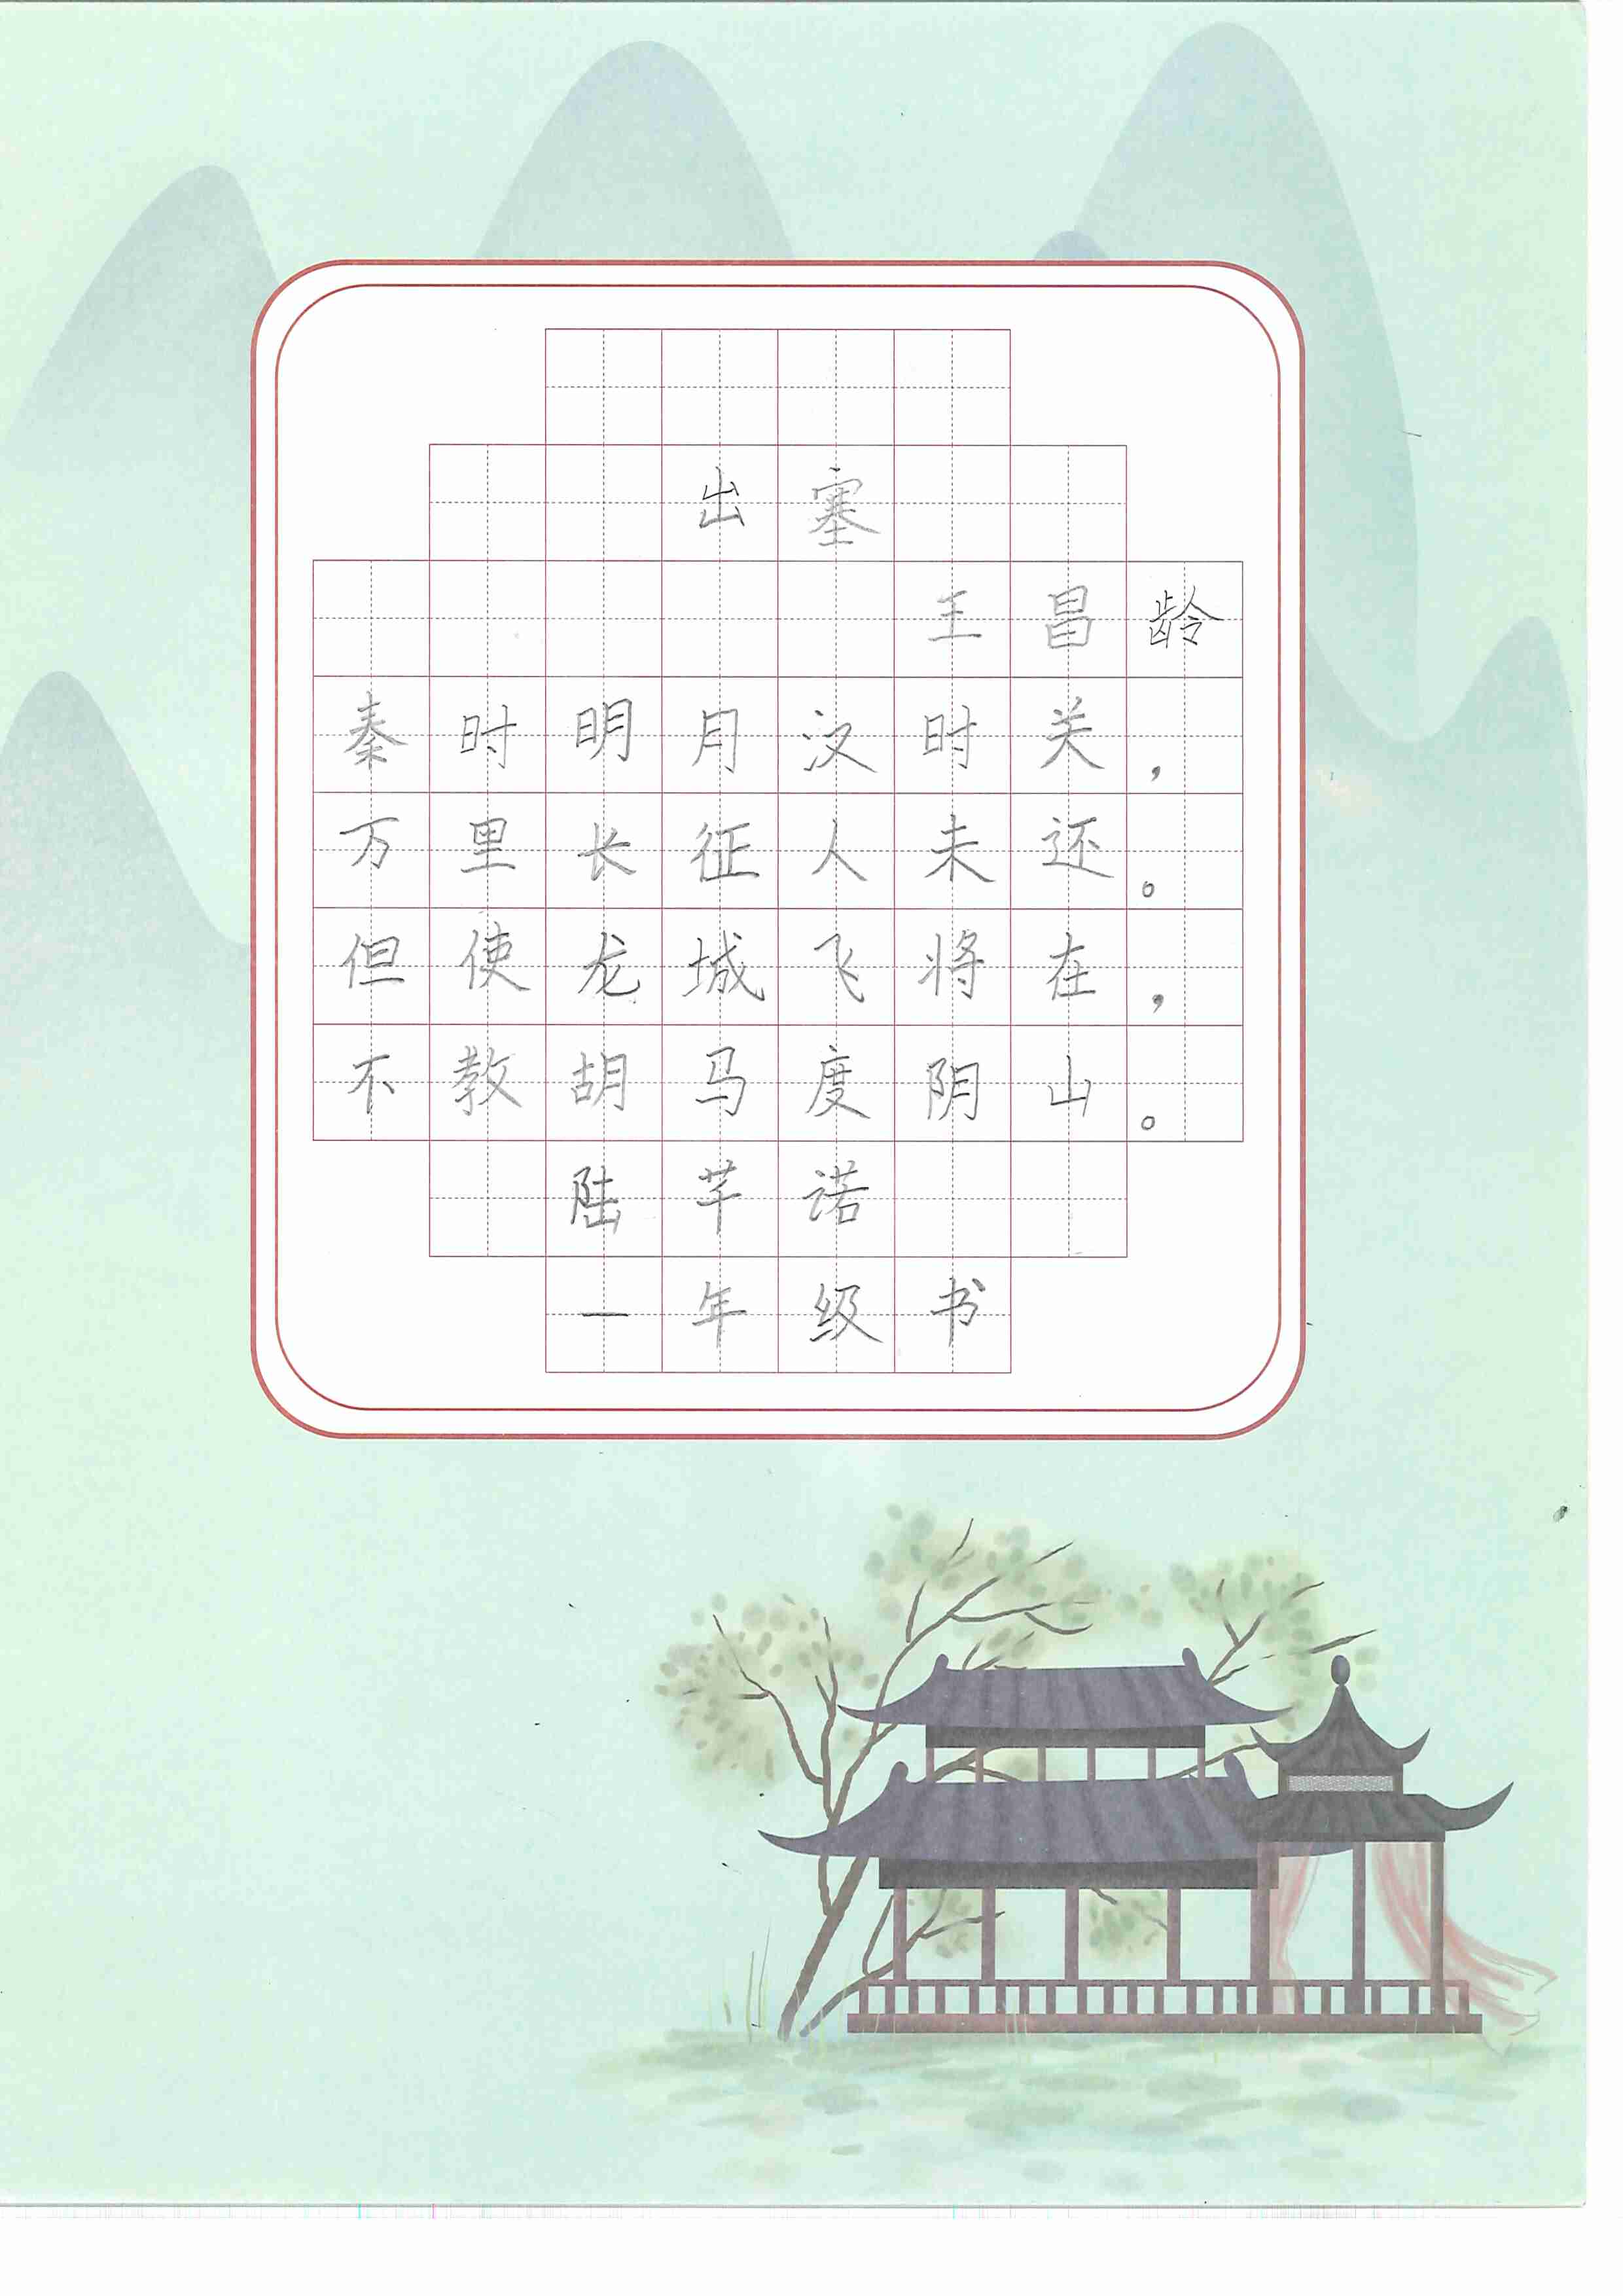 出塞
王昌龄
秦时明月汉时关，
万里长征人未还。
但使龙城飞将在，
不教胡马度阴山。
陆芊诺
一年级书